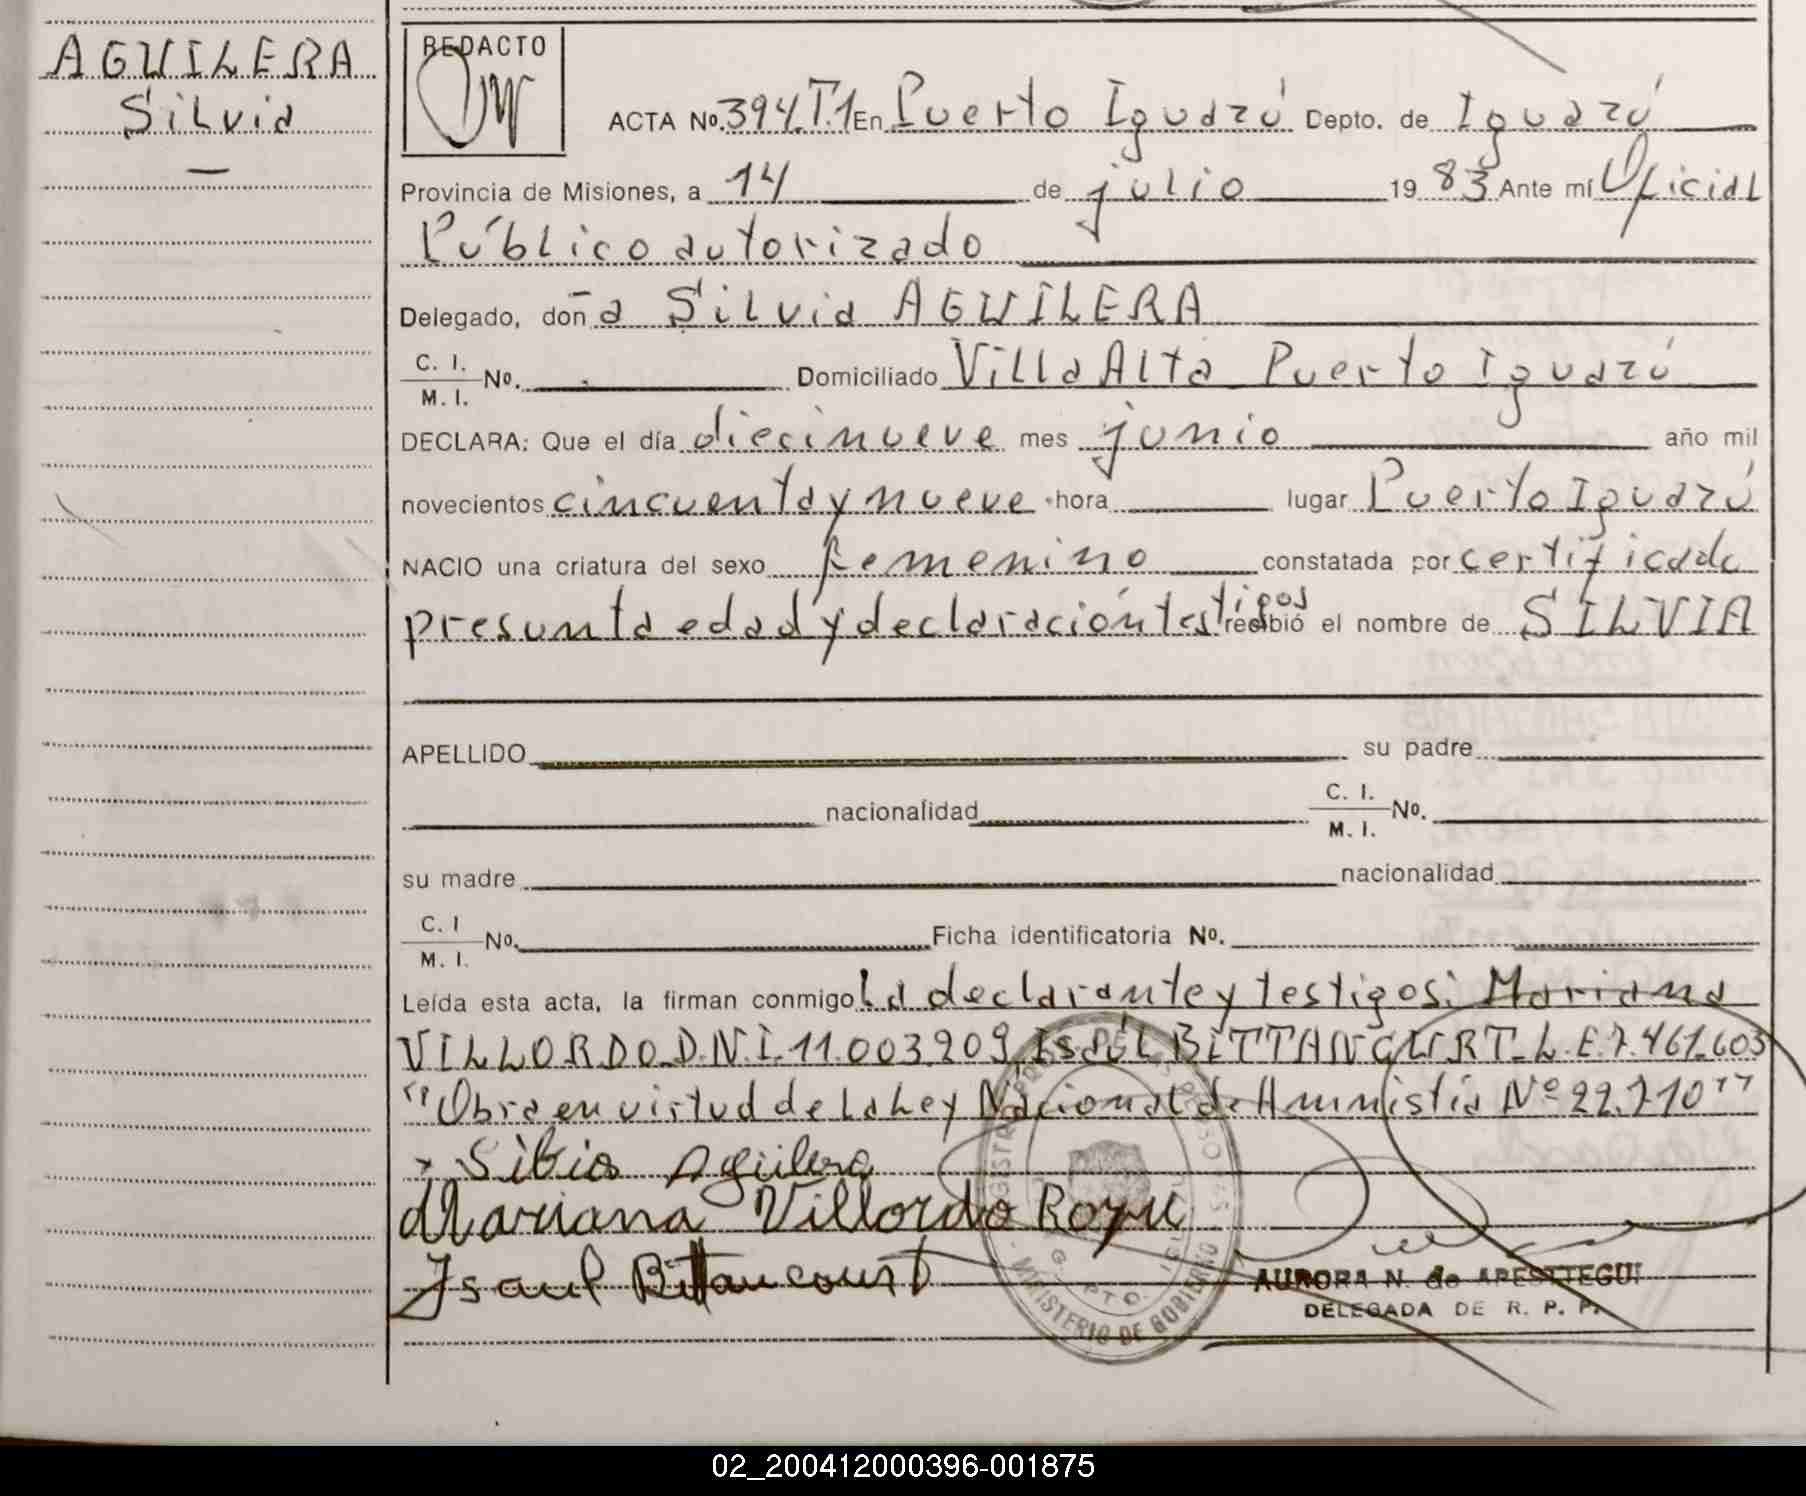 AGUILERA
Silvia
REDACTO
ACTA Nº. 394.T.1 En Puerto Iguazú Depto. de Iguazú
Provincia de Misiones, a 14 de julio 1983 Ante mí Oficial
Público autorizado
Delegado, doña Silvia AGUILERA
C. I.
M. I. Nº. Domiciliado Villa Alta Puerto Iguazú
DECLARA: Que el día diecinueve mes junio año mil
novecientos cincuenta y nueve hora lugar Puerto Iguazú
NACIO una criatura del sexo femenino constatada por certificado
presunta edad y declaración testigos recibió el nombre de SILVIA
APELLIDO su padre
nacionalidad C. I.
M. I. Nº.
su madre nacionalidad
C. I
M. I. Nº. Ficha identificatoria Nº.
Leída esta acta, la firman conmigo La declarante y testigos: Mariana
VILLORDO D.N.I. 11.003.909 BITTANCURT L.E. 7.461.603
"Obra en virtud de La Ley Nacional de Amnistia Nº 22.710"
Silvia Aguilera
Mariana Villordo
Isaul Bittancourt
AURORA N. de APESTEGUI
DELEGADA DE R. P. P.
MINISTERIO DE GOBIERNO
02_200412000396-001875